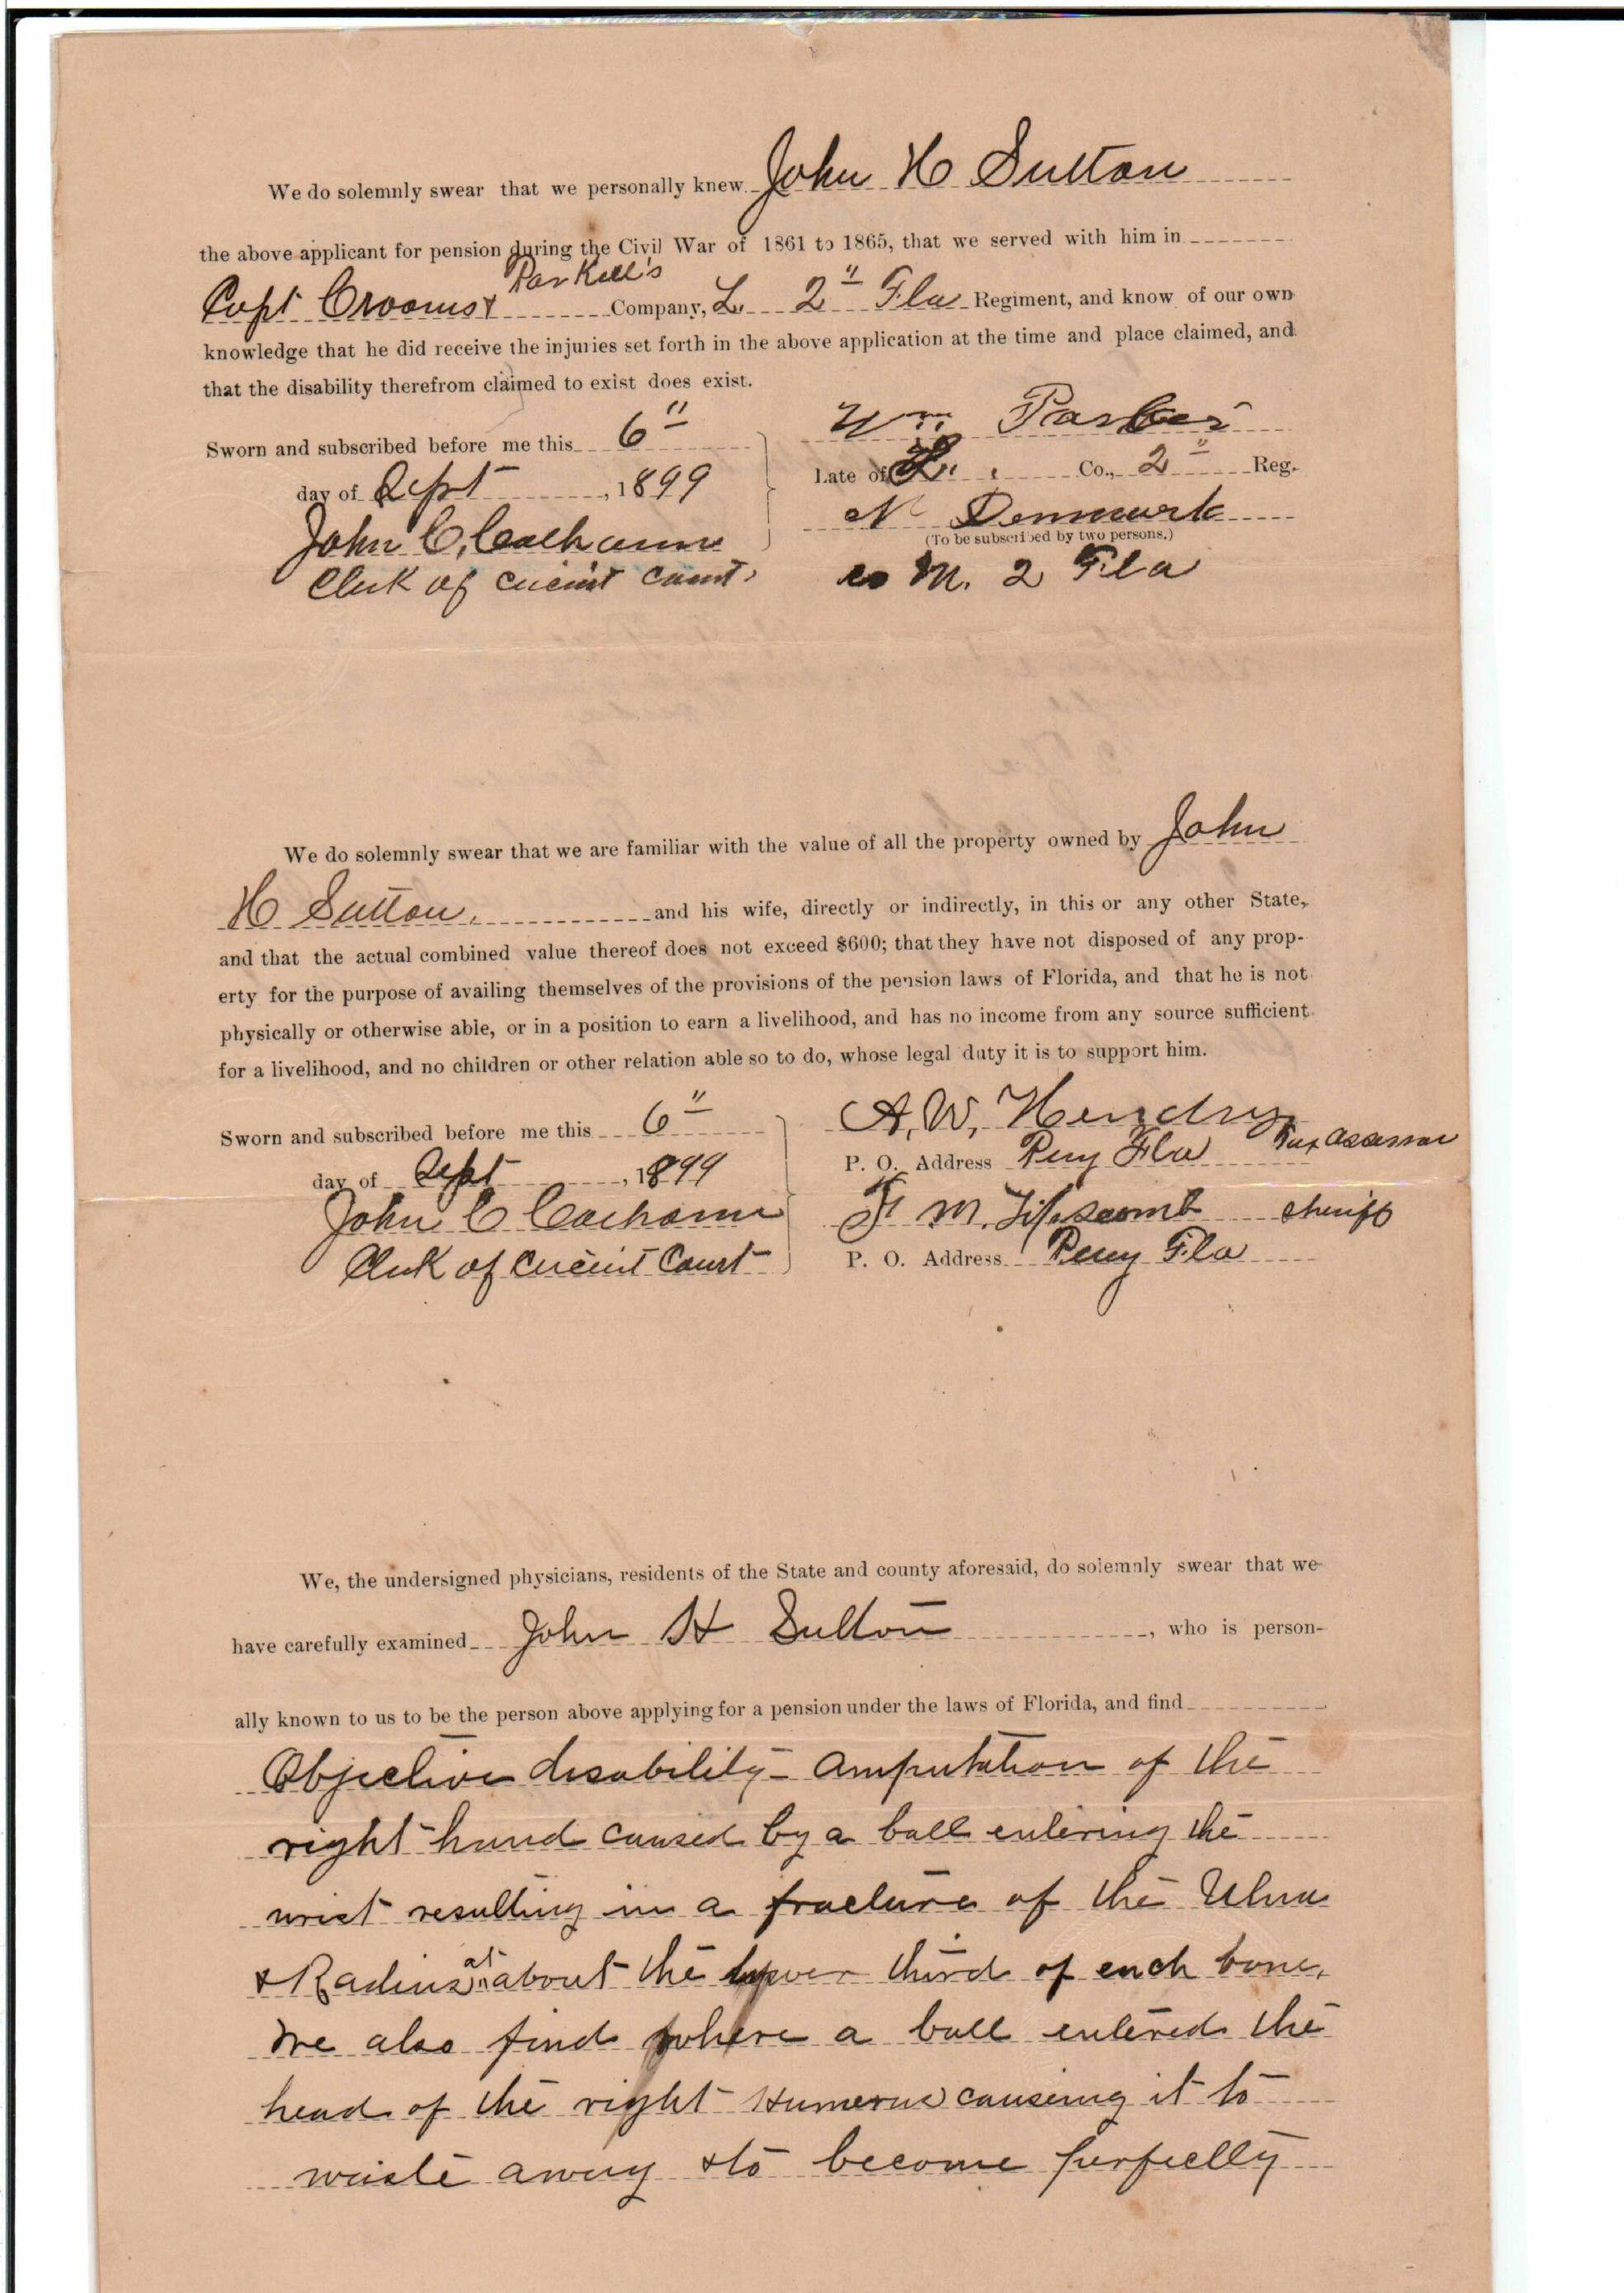 We do solemnly swear that we personally knew John H Sutton
the above applicant for pension during the Civil War of 1861 to 1865, that we served with him in
Parkell's
Capt Crooms & Company, L 2" Fla Regiment, and know of our own
knowledge that he did receive the injuries set forth in the above application at the time and place claimed, and
that the disability therefrom claimed to exist does exist.
Sworn and subscribed before me this 6"
day of Sept, 1899
John C. Calhoun
Clerk of Circuit Court.
Wm. Parker
Late of L. Co., 2" Reg.
N Denmark
(To be subscribed by two persons.)
co M. 2 Fla
We do solemnly swear that we are familiar with the value of all the property owned by John
H Sutton, and his wife, directly or indirectly, in this or any other State,
and that the actual combined value thereof does not exceed $600; that they have not disposed of any prop-
erty for the purpose of availing themselves of the provisions of the pension laws of Florida, and that he is not
physically or otherwise able, or in a position to earn a livelihood, and has no income from any source sufficient
for a livelihood, and no children or other relation able so to do, whose legal duty it is to support him.
Sworn and subscribed before me this 6"
day of Sept, 1899
John C Calhoun
Clerk of Circuit Court
A. W. Hendry
P. O. Address Perry Fla Tax Assessor
M. Lipscomb Sheriff
P. O. Address Perry Fla
We, the undersigned physicians, residents of the State and county aforesaid, do solemnly swear that we
have carefully examined John H Sutton, who is person-
ally known to us to be the person above applying for a pension under the laws of Florida, and find
Objective disability - Amputation of the
right hand caused by a ball entering the
wrist resulting in a fracture of the Ulna
& Radius at about the lower third of each bone.
We also find where a ball entered the
head of the right Humerus causeing it to
waste away & to become perfectly